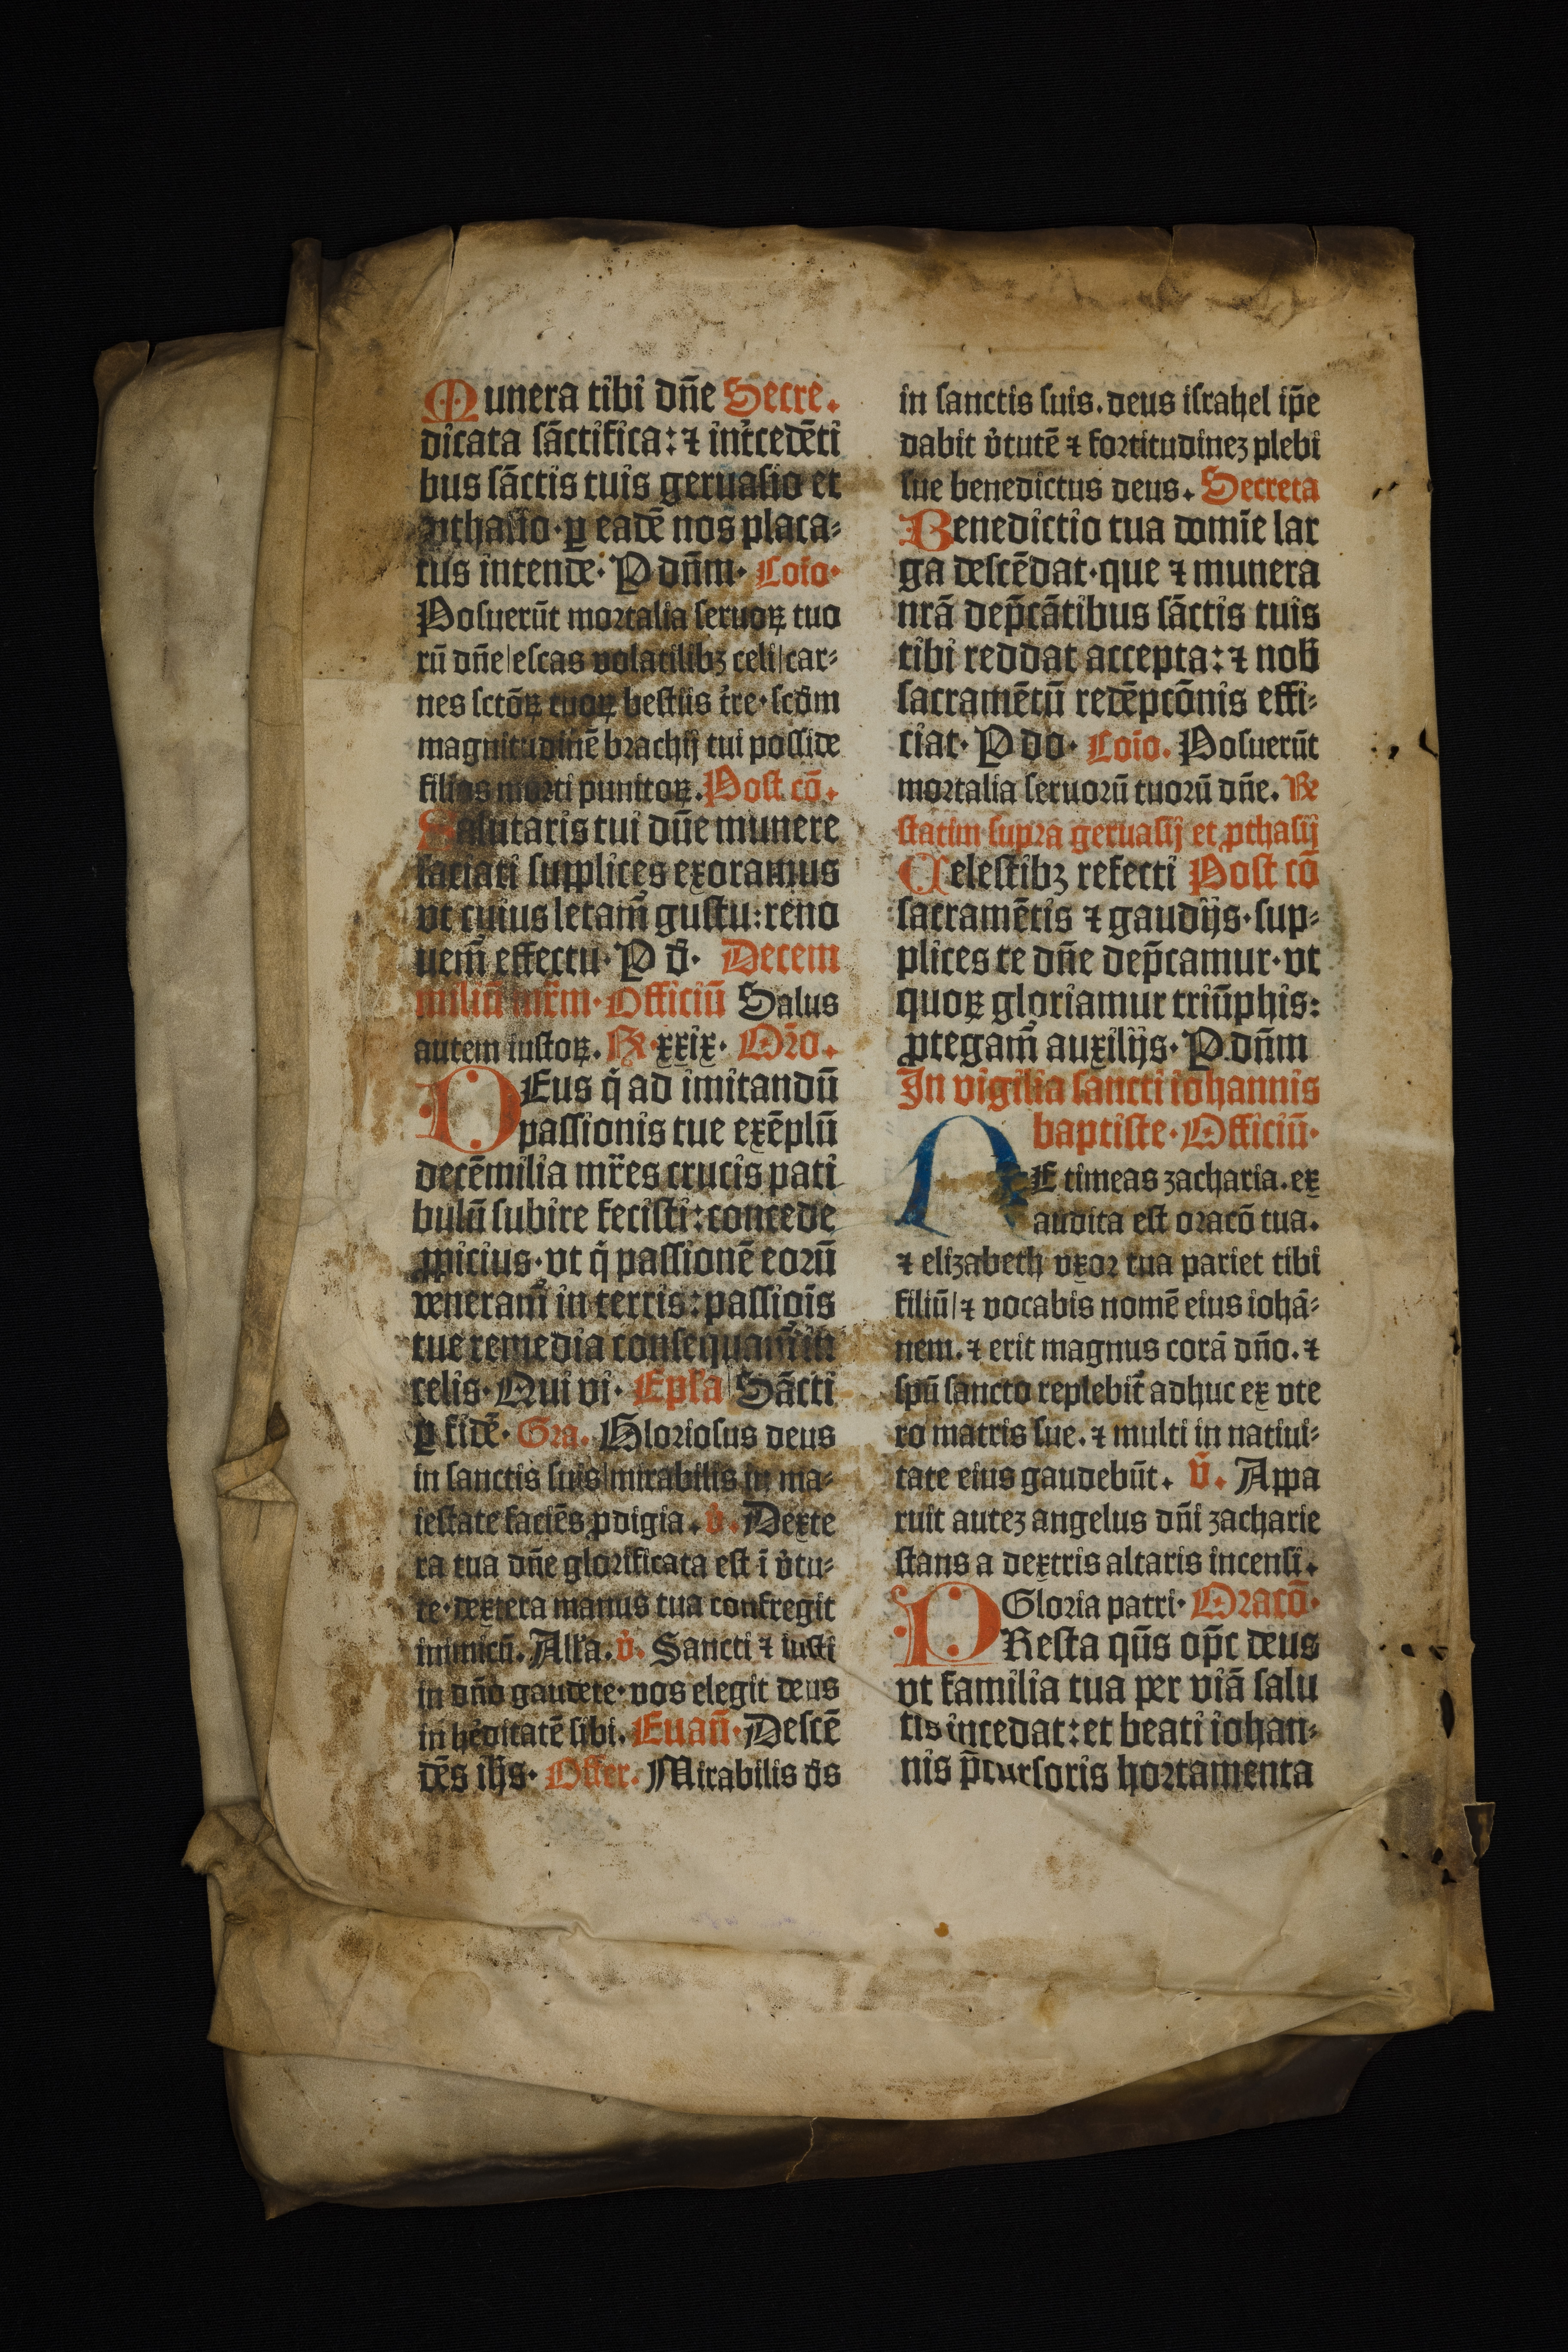 Munera tibi dn̄e Secre.
dicata sāctifica: ⁊ int̄cedēti
bus sāctis tuis geruasio et
ꝓthasio· ꝑ eadē nos placa-
tus intende· P dn̄m· Cōio·
Posuerūt mortalia seruoꝝ tuo
rū dn̄e|escas volatilibꝫ celi|car-
nes sctōꝝ tuoꝝ bestijs t̄re· scd̄m
magnitudinē brachij tui posside
filios morti punitoꝝ. Post cō.
Salutaris tui dn̄e munere
satiati supplices exoramus
vt cuius letam̄ gustu: reno
uem̄ effectu· P d̄· Decem
miliū mr̄m· Officiū Salus
autem iustoꝝ. R xxix· Or̄o.
DEus q̄ ad imitandū
passionis tue exēplū
decēmilia mr̄es crucis pati
bulū subire fecisti: concede
ꝓpicius· vt q̄ passionē eorū
veneram̄ in terris: passiōis
tue remedia consequam̄ in
celis· Qui vi· Ep̄la Sācti
ꝑ fidē· Gra. Gloriosus deus
in sanctis suis|mirabilis in ma-
iestate faciēs ꝓdigia. v̄. Dexte
ra tua dn̄e glorificata est ī v̄tu-
te· dextera manus tua confregit
inimicū. Alla. v̄. Sancti ⁊ iusti
in dn̄o gaudete· vos elegit deus
in hēditatē sibi. Euan̄· Descē
dēs ih̄s· Offer. Mirabilis d̄s
in sanctis suis. deus israhel ip̄e
dabit v̄tutē ⁊ fortitudineꝫ plebi
sue benedictus deus. Secreta
Benedictio tua domīe lar
ga descēdat· que ⁊ munera
nrā dep̄cātibus sāctis tuis
tibi reddat accepta: ⁊ nob̄
sacramētū redēpcōnis effi-
ciat· P do· Cōio. Posuerūt
mortalia seruorū tuorū dn̄e. Re
statim supra geruasij et ꝓthasij
Celestibꝫ refecti Post cō
sacramētis ⁊ gaudijs· sup-
plices te dn̄e dep̄camur· vt
quoꝝ gloriamur triūphis:
ꝓtegam̄ auxilijs· P dn̄m
In vigilia sancti iohannis
baptiste· Officiū·
NE timeas zacharia. ex
audita est oracō tua.
⁊ elizabeth vxor tua pariet tibi
filiū|⁊ vocabis nomē eius iohā-
nem. ⁊ erit magnus corā dn̄o. ⁊
spū sancto replebit̄ adhuc ex vte
ro matris sue. ⁊ multi in natiui-
tate eius gaudebūt. v̄. Appa
ruit auteꝫ angelus dn̄i zacharie
stans a dextris altaris incensi.
Gloria patri· Oracō·
PResta qūs op̄c deus
vt familia tua per viā salu
tis incedat: et beati iohan-
nis p̄cursoris hortamenta